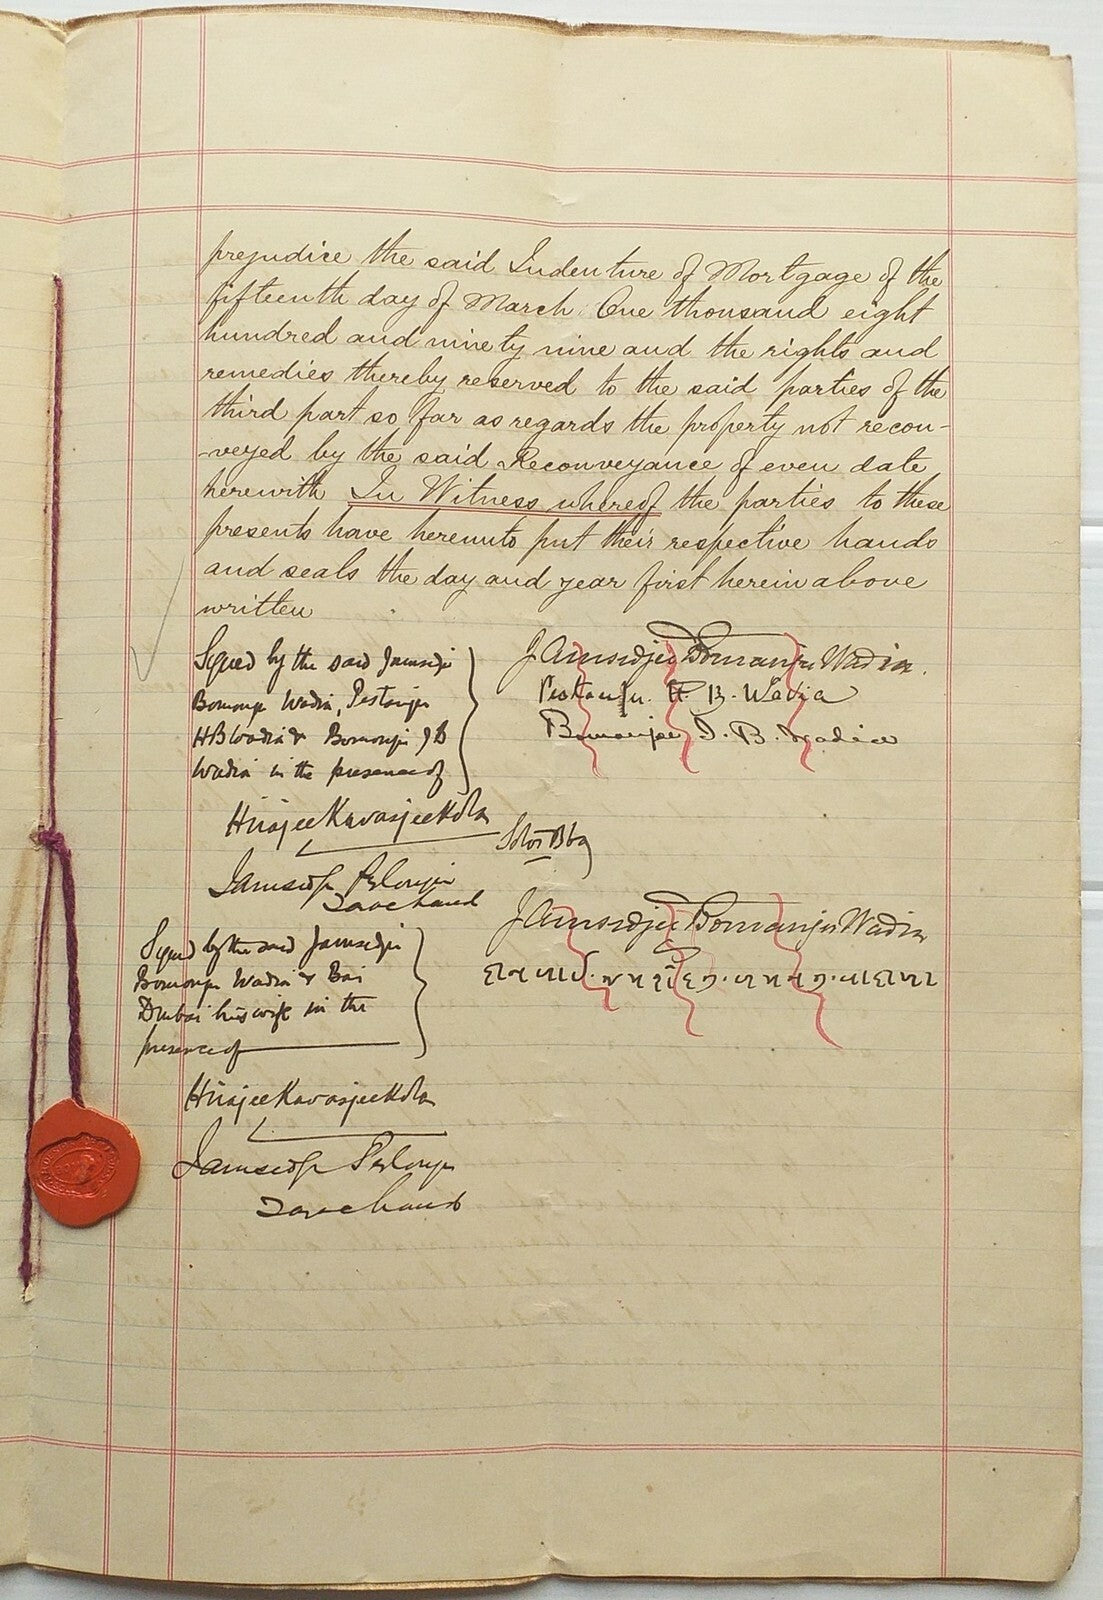 prejudice the said Indenture of Mortgage of the
fifteenth day of March One thousand eight
hundred and ninety nine and the rights and
remedies thereby reserved to the said parties of the
third part so far as regards the property not recon-
-veyed by the said Reconveyance of even date
herewith In Witness whereof the parties to these
presents have hereunto put their respective hands
and seals the day and year first herein above
written
Signed by the said Jamsedji
Bomonji Wadia, Pestonji
HB Wadia & Bomonji J B
Wadia in the presence of
Jamsedjee Bomanjee Wadia.
Pestanju. H. B. Wadia
Bomanjee J. B. Wadia
Hirajee Kavasjee
Solor Bby
Jamsedji Pestonji
Tarachand
Signed by the said Jamsedji
Bomonji Wadia & Bai
his wife in the
presence of
Jamsedjee Bomanjee Wadia
Hirajee Kavasjee
Jamsedji Pestonji
Tarachand